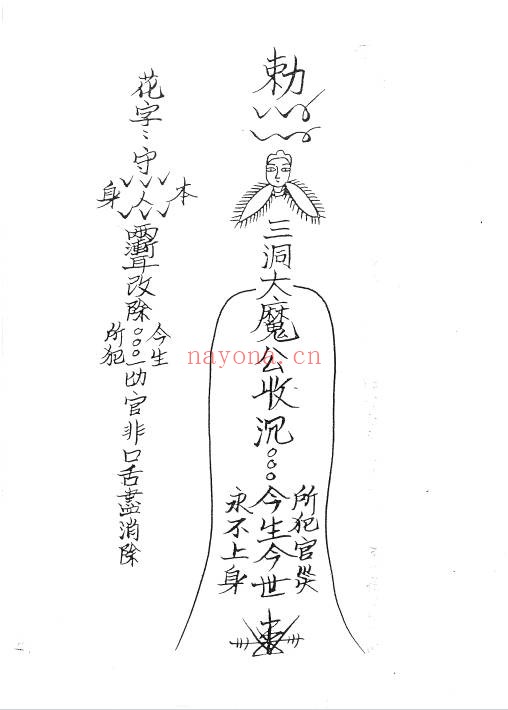 勅
三洞大魔公收沉
所犯官災
今生今世
永不上身
花字〻守
本人身
改除
今生
所犯
一切官非口舌盡消除
nayona.cn